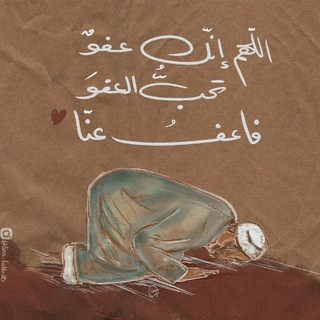 اللّهم إنّك عفوٌ
تحبُّ العفوَ
فاعفُ عنّا